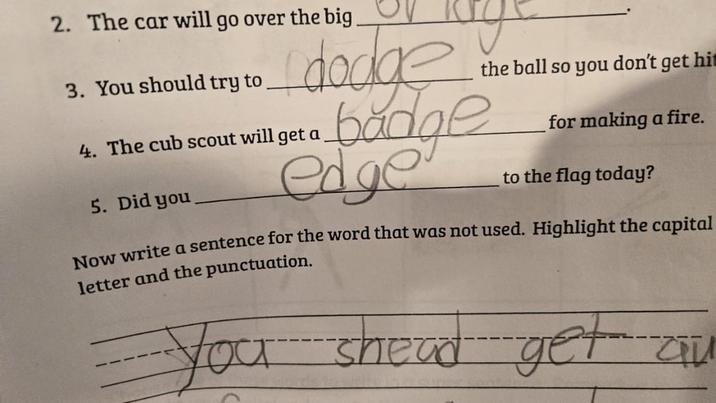 2. The car will go over the big .
3. You should try to dodge the ball so you don't get hit
4. The cub scout will get a badge for making a fire.
5. Did you edge to the flag today?
Now write a sentence for the word that was not used. Highlight the capital
letter and the punctuation.
You shead get